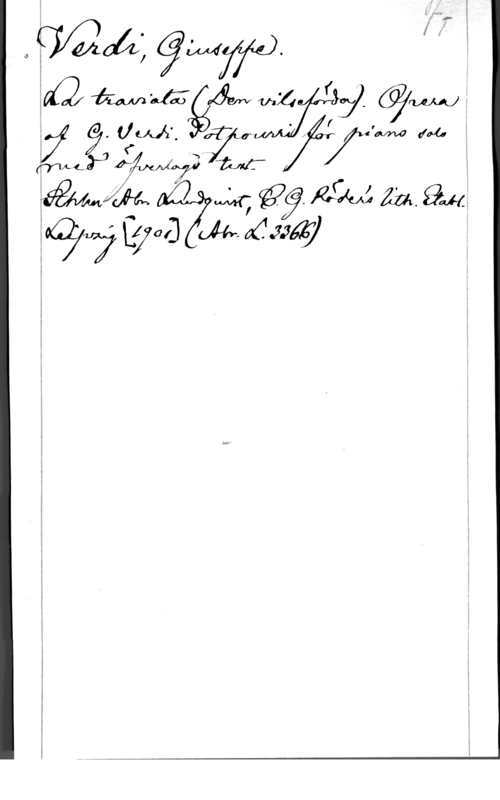 Verdi, Giuseppe.
La traviata (Den vilseförda). Opera
af G. Verdi. Potpourri för piano solo
med öfverlagd text.
Sthlm Abr. Lundquist, C. G. Röder's lith. Etabl.
Leipzig [1901] (Abr. L. 3366)